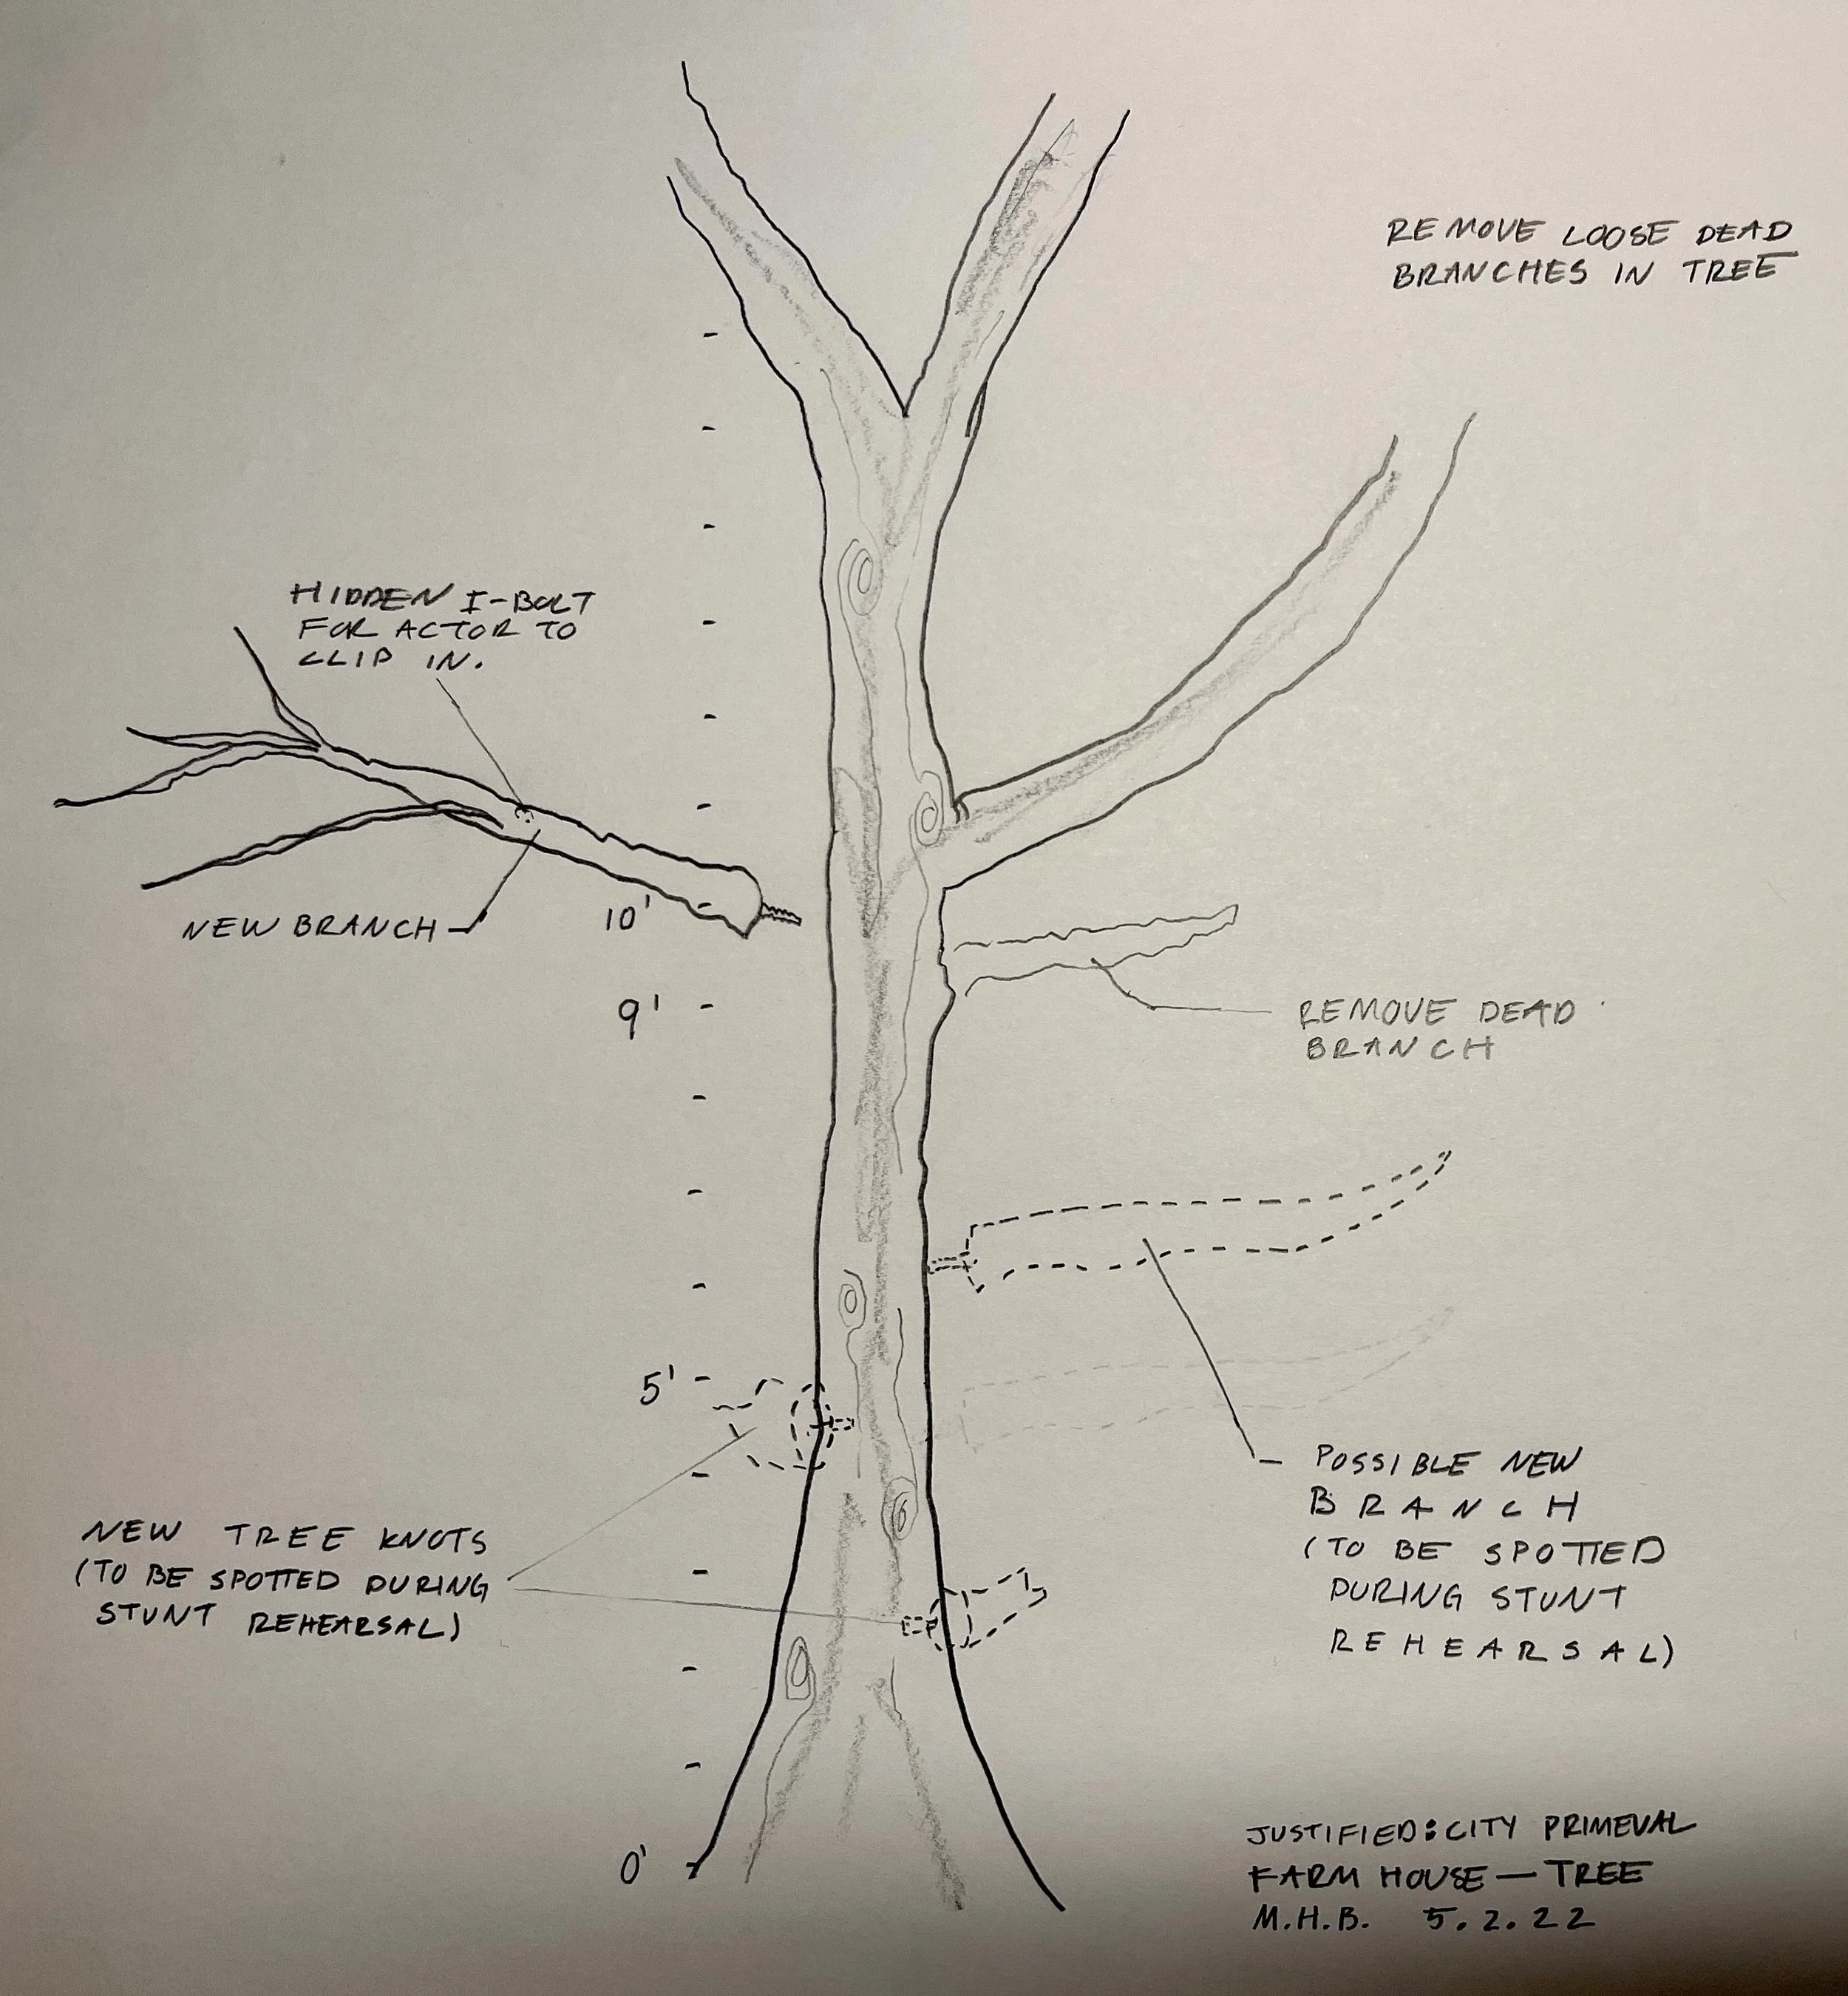 REMOVE LOOSE DEAD
BRANCHES IN TREE
HIDDEN I-BOLT
FOR ACTOR TO
CLIP IN.
NEW BRANCH
10'
9'
REMOVE DEAD
BRANCH
5'
POSSIBLE NEW
BRANCH
(TO BE SPOTTED
DURING STUNT
REHEARSAL)
NEW TREE KNOTS
(TO BE SPOTTED DURING
STUNT REHEARSAL)
0'
JUSTIFIED: CITY PRIMEVAL
FARM HOUSE — TREE
M.H.B. 5.2.22